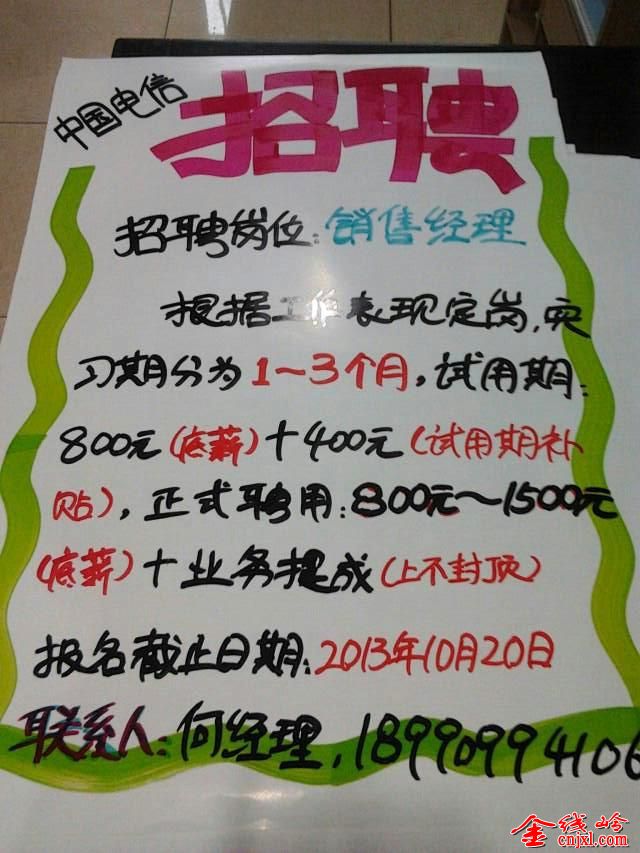 中国电信
招聘
招聘岗位:销售经理
根据工作表现定岗,实
习期分为1~3个月,试用期:
800元(底薪)+400元(试用期补
贴),正式聘用:800元~1500元
(底薪)+业务提成(上不封顶)
报名截止日期:2013年10月20日
联系人:何经理,18990994106
金线岭
cnjxl.com